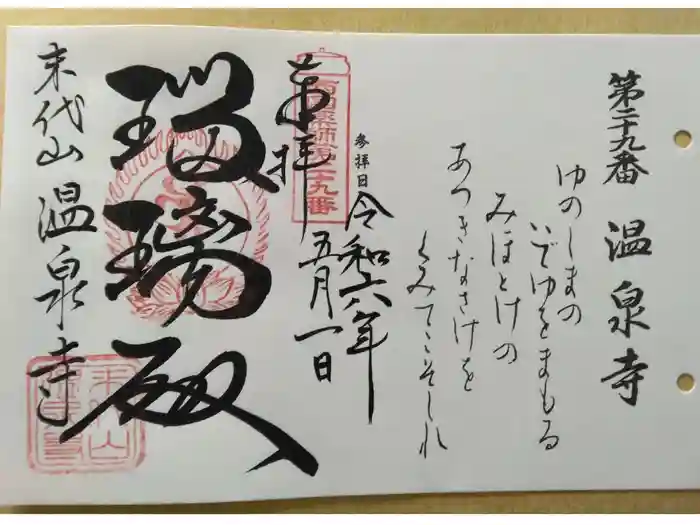 第二十九番 温泉寺
ゆのしまの
いでゆをまもる
みほとけの
あつきなさけを
くみてこそしれ
参拝日
令和六年
五月一日
奉拝
西国薬師第二十九番
瑠璃殿
末代山 温泉寺